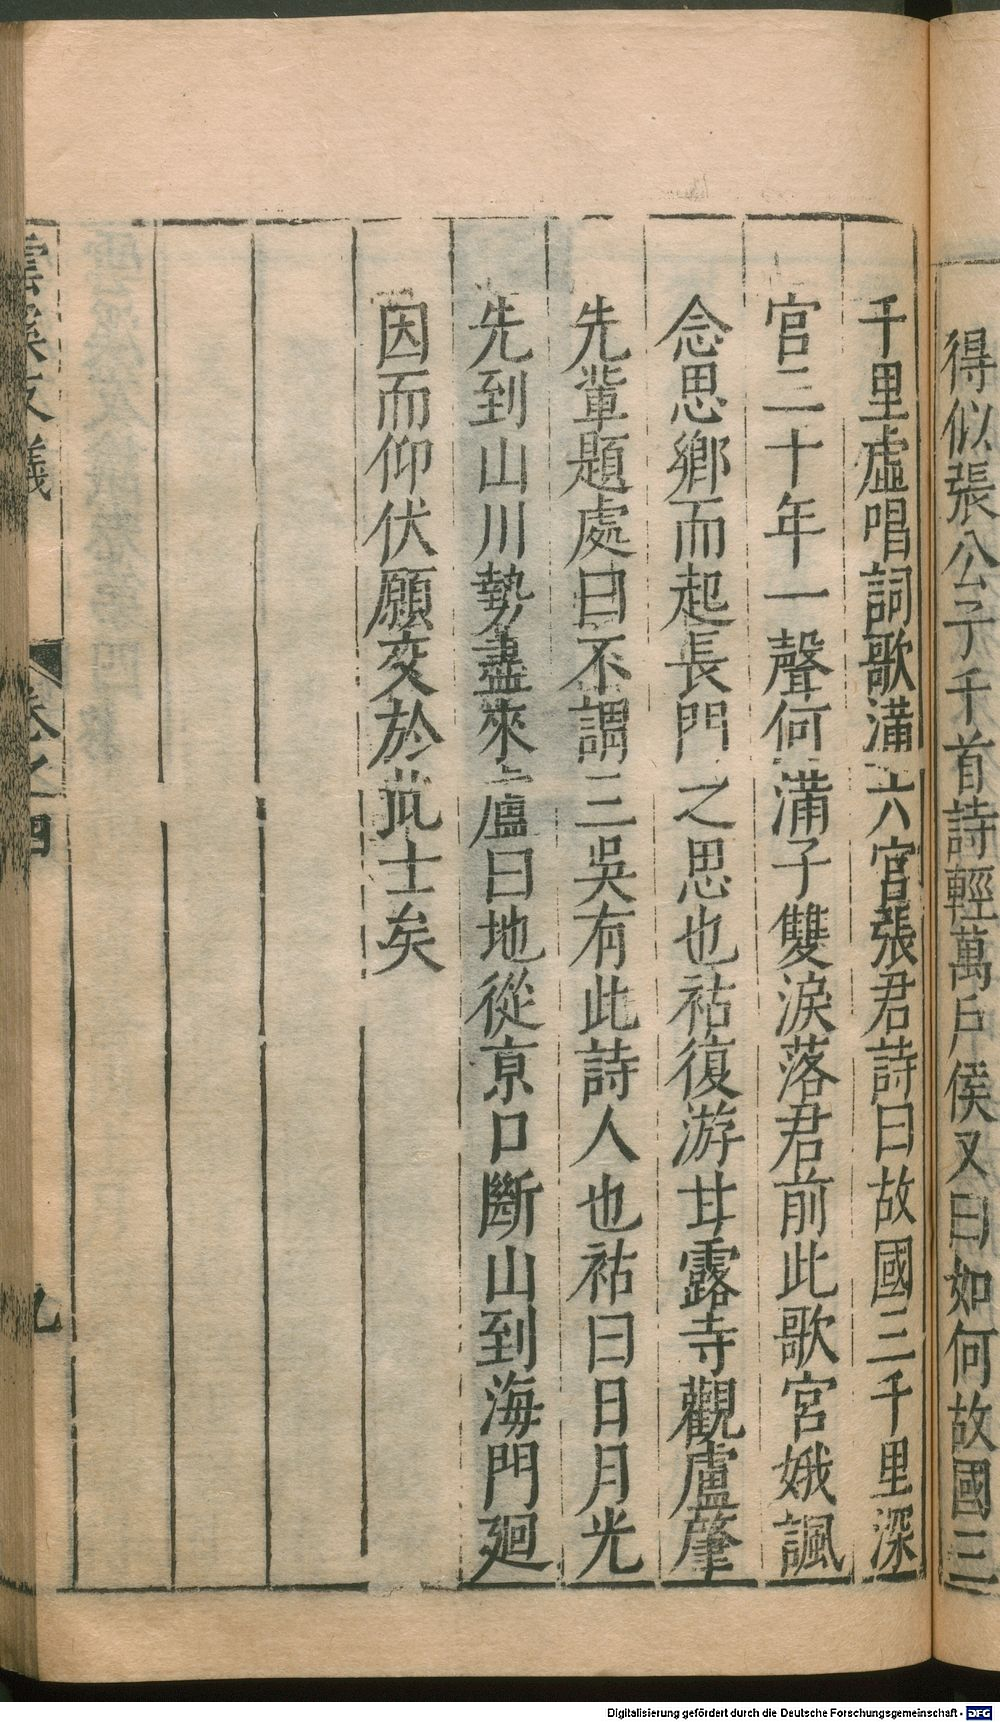 得似張公子千首詩輕萬戶侯又曰如何故國三
千里虛唱詞歌滿六宮張君詩曰故國三千里深
宮二十年一聲何滿子雙淚落君前此歌宮娥諷
念思鄉而起長門之思也祜復游甘露寺觀盧肇
先輩題處曰不謂三吳有此詩人也祜曰日月光
先到山川勢盡來盧曰地從京口斷山到海門廻
因而仰伏願交於此士矣
雲溪友議 卷之四 九
Digitalisierung gefördert durch die Deutsche Forschungsgemeinschaft - DFG